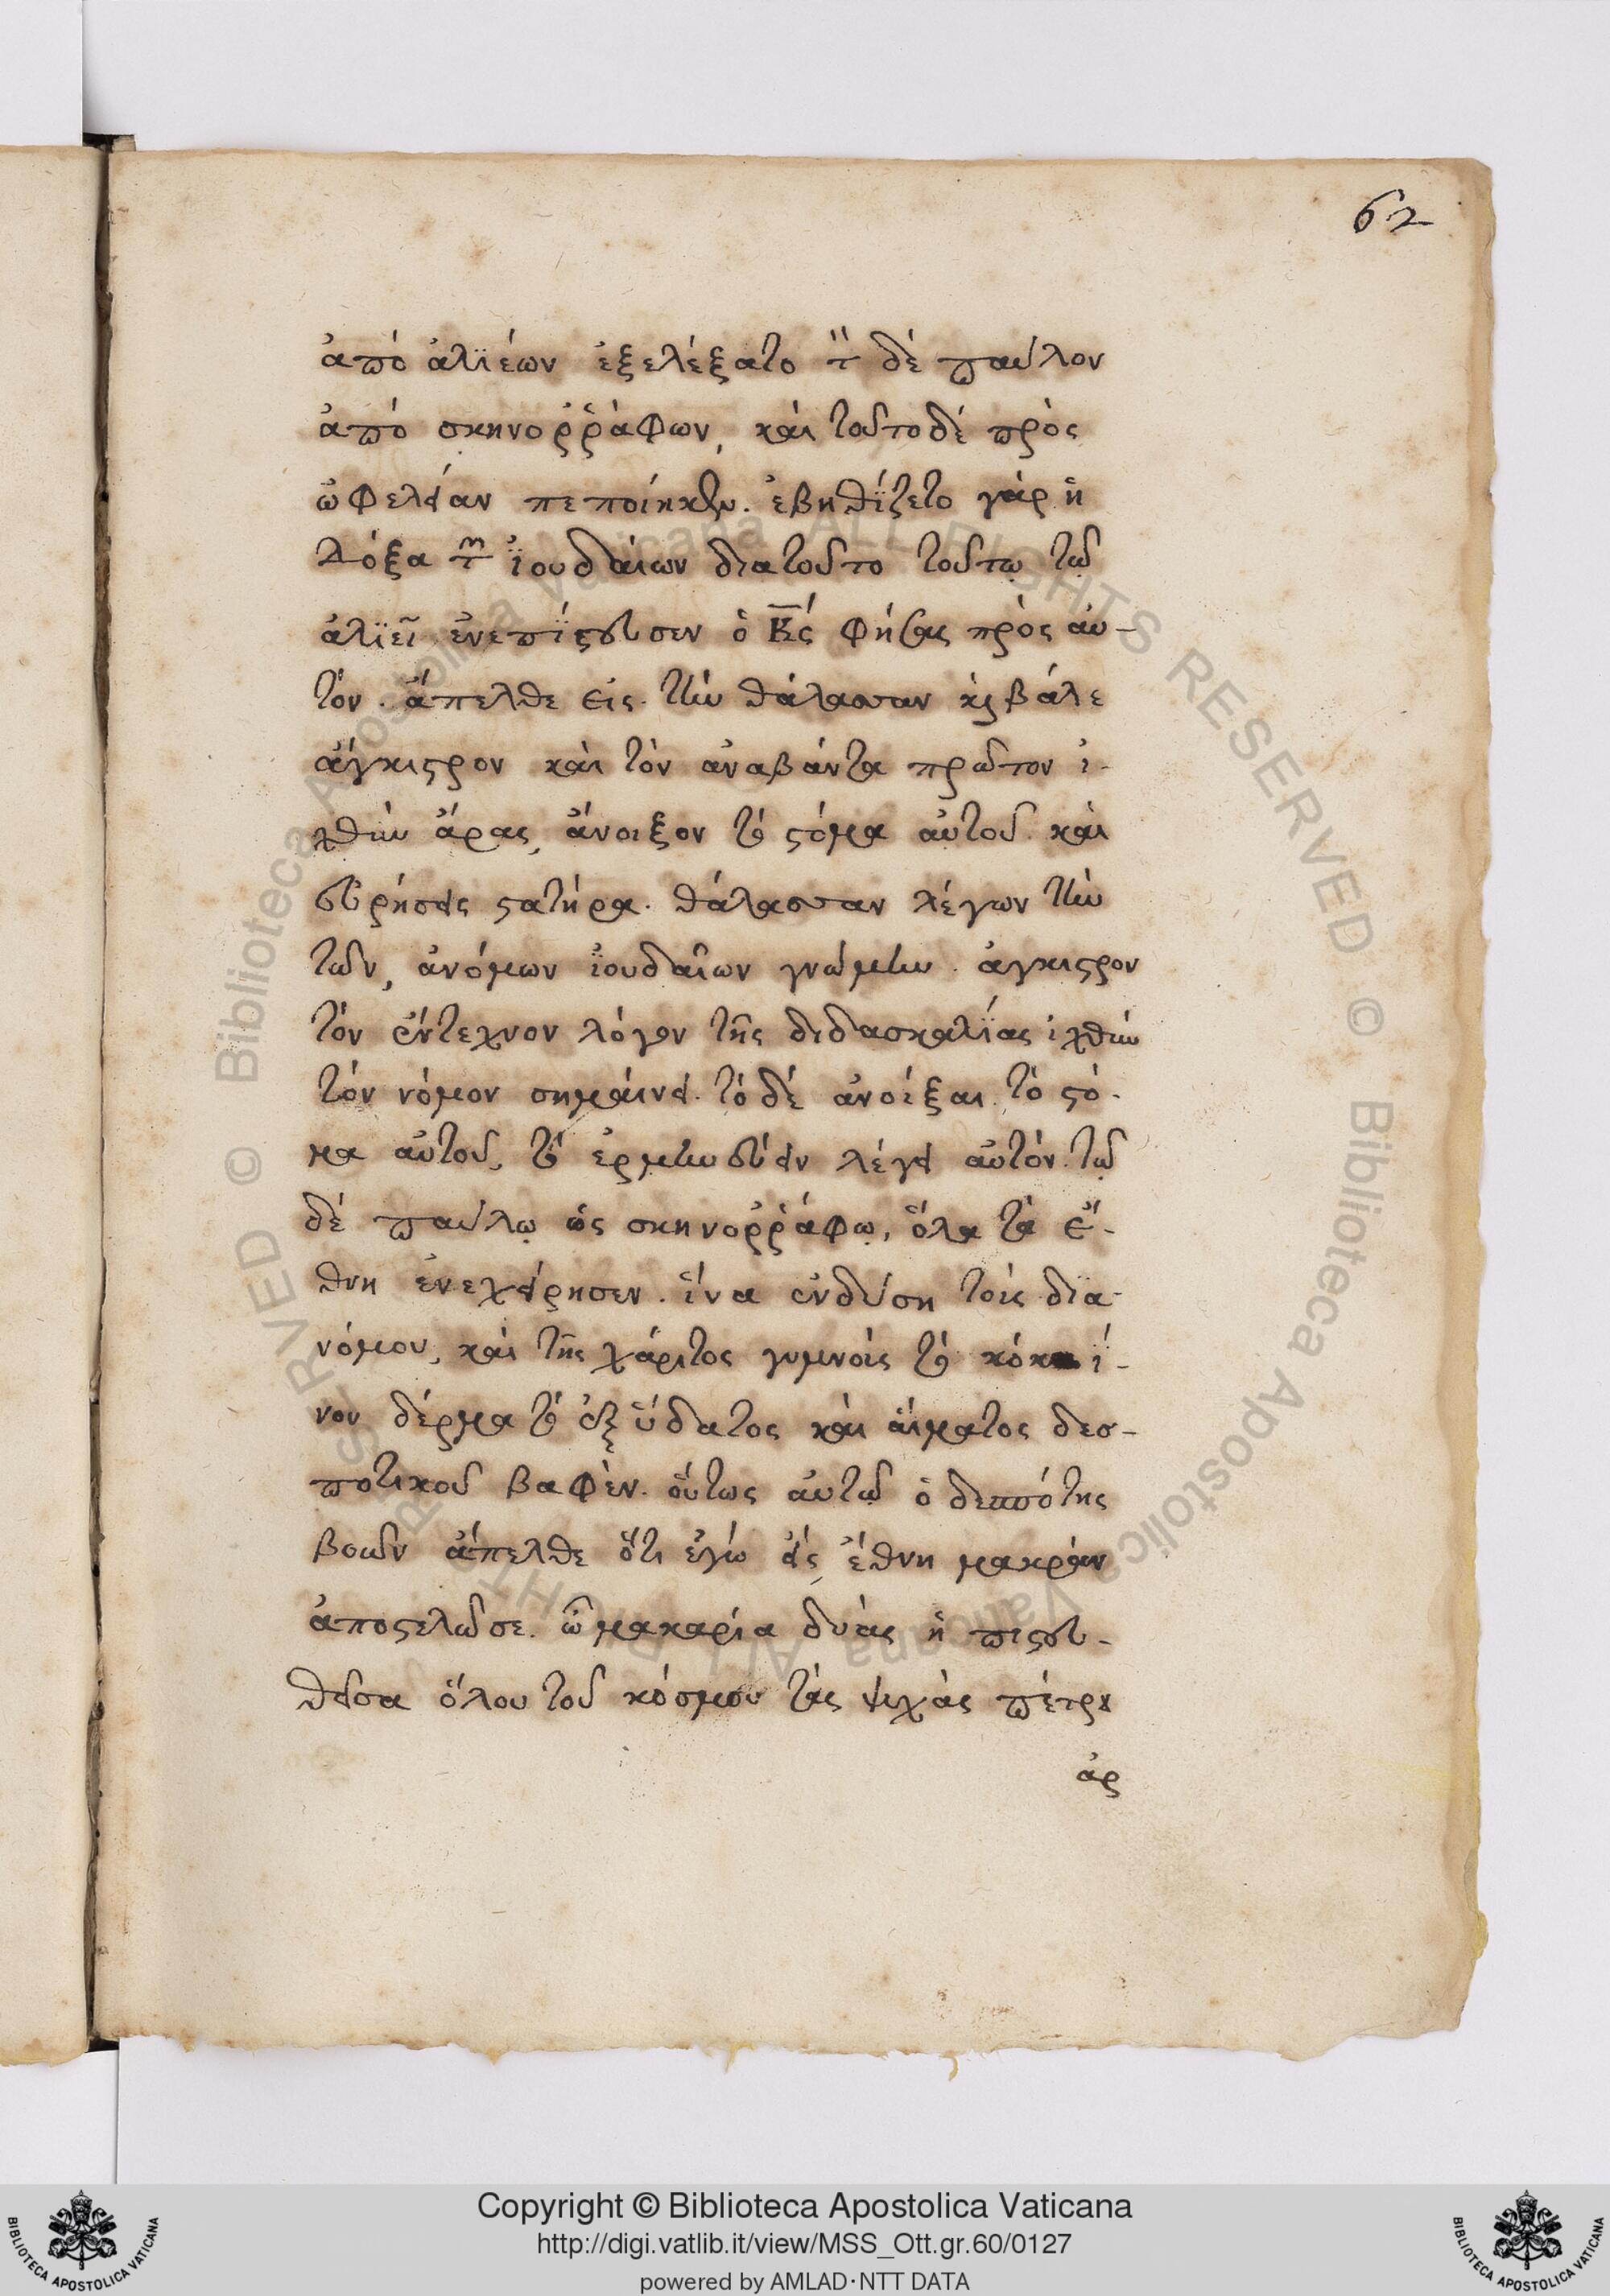 62
ἀπὸ ἁλϊέων ἐξελέξατο τ̏ δέ παύλον
ἀπὸ σκηνοῤῥάφων, καὶ τοῦτο δέ πρὸς
ὠφελείαν πεποίηκεν. ἐβηθΐζετο γάρ ἡ
Δόξα τ῀ ἰουδαίων διατοῦτο τούτῳ τῷ
ἁλϊεῖ ἐνεπΐστευσεν ὁ Κς φήσας πρὸς αὐ-
τόν. ἄπελθε εἰς τὴν θάλασσαν κ̀ βάλε
ἄγκιστρον καὶ τὸν ἀναβάντα πρῶτον ἰ-
χθὴν ἄρας, ἄνοιξον τὸ στόμα αὐτοῦ καὶ
εὑρήσεις στατήρα. θάλασσαν λέγων τὴν
τῶν, ἀνόμων ἰουδαίων γνώμην. ἄγκιστρον
τὸν ἔντεχνον λόγον τῆς διδασκαλΐας ἰχθὴν
τὸν νόμον σημαίνει. τὸ δέ ἀνοίξαι τὸ στό-
μα αὐτοῦ, τὸ ἑρμηνεύειν λέγει αὐτόν. τῷ
δέ παύλῳ ὡς σκηνοῤῥάφῳ, ὅλα τὰ ἔ-
θνη ἐνεχείρησεν. ἵνα ἐνδύσῃ τοὶς δϊα
νόμου, καὶ τῆς χάριτος γυμνοὶς τὸ κόκκί-
νον δέρμα τὸ ἐξ ὕδατος καὶ αἵματος δεσ-
ποτικοῦ βαφὲν. οὕτως αὐτῷ ὁ δεσπότης
βοῶν ἄπελθε ὅτι ἐγὼ εἰς ἔθνη μακρὰν
ἀποστελῶ σε. ὦ μακαρία δυὰς ἡ πιστευ-
θεῖσα ὅλου τοῦ κόσμου τὰς ψυχὰς πέτρου
ἀρ
Copyright © Biblioteca Apostolica Vaticana
http://digi.vatlib.it/view/MSS_Ott.gr.60/0127
powered by AMLAD·NTT DATA
BIBLIOTECA APOSTOLICA VATICANA
BIBLIOTECA APOSTOLICA VATICANA